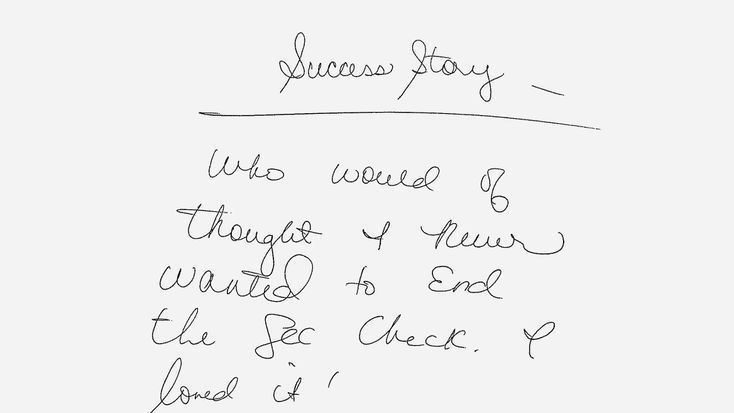 Success Story —
Who would of
thought I never
wanted to End
the Sec Check. I
loved it!